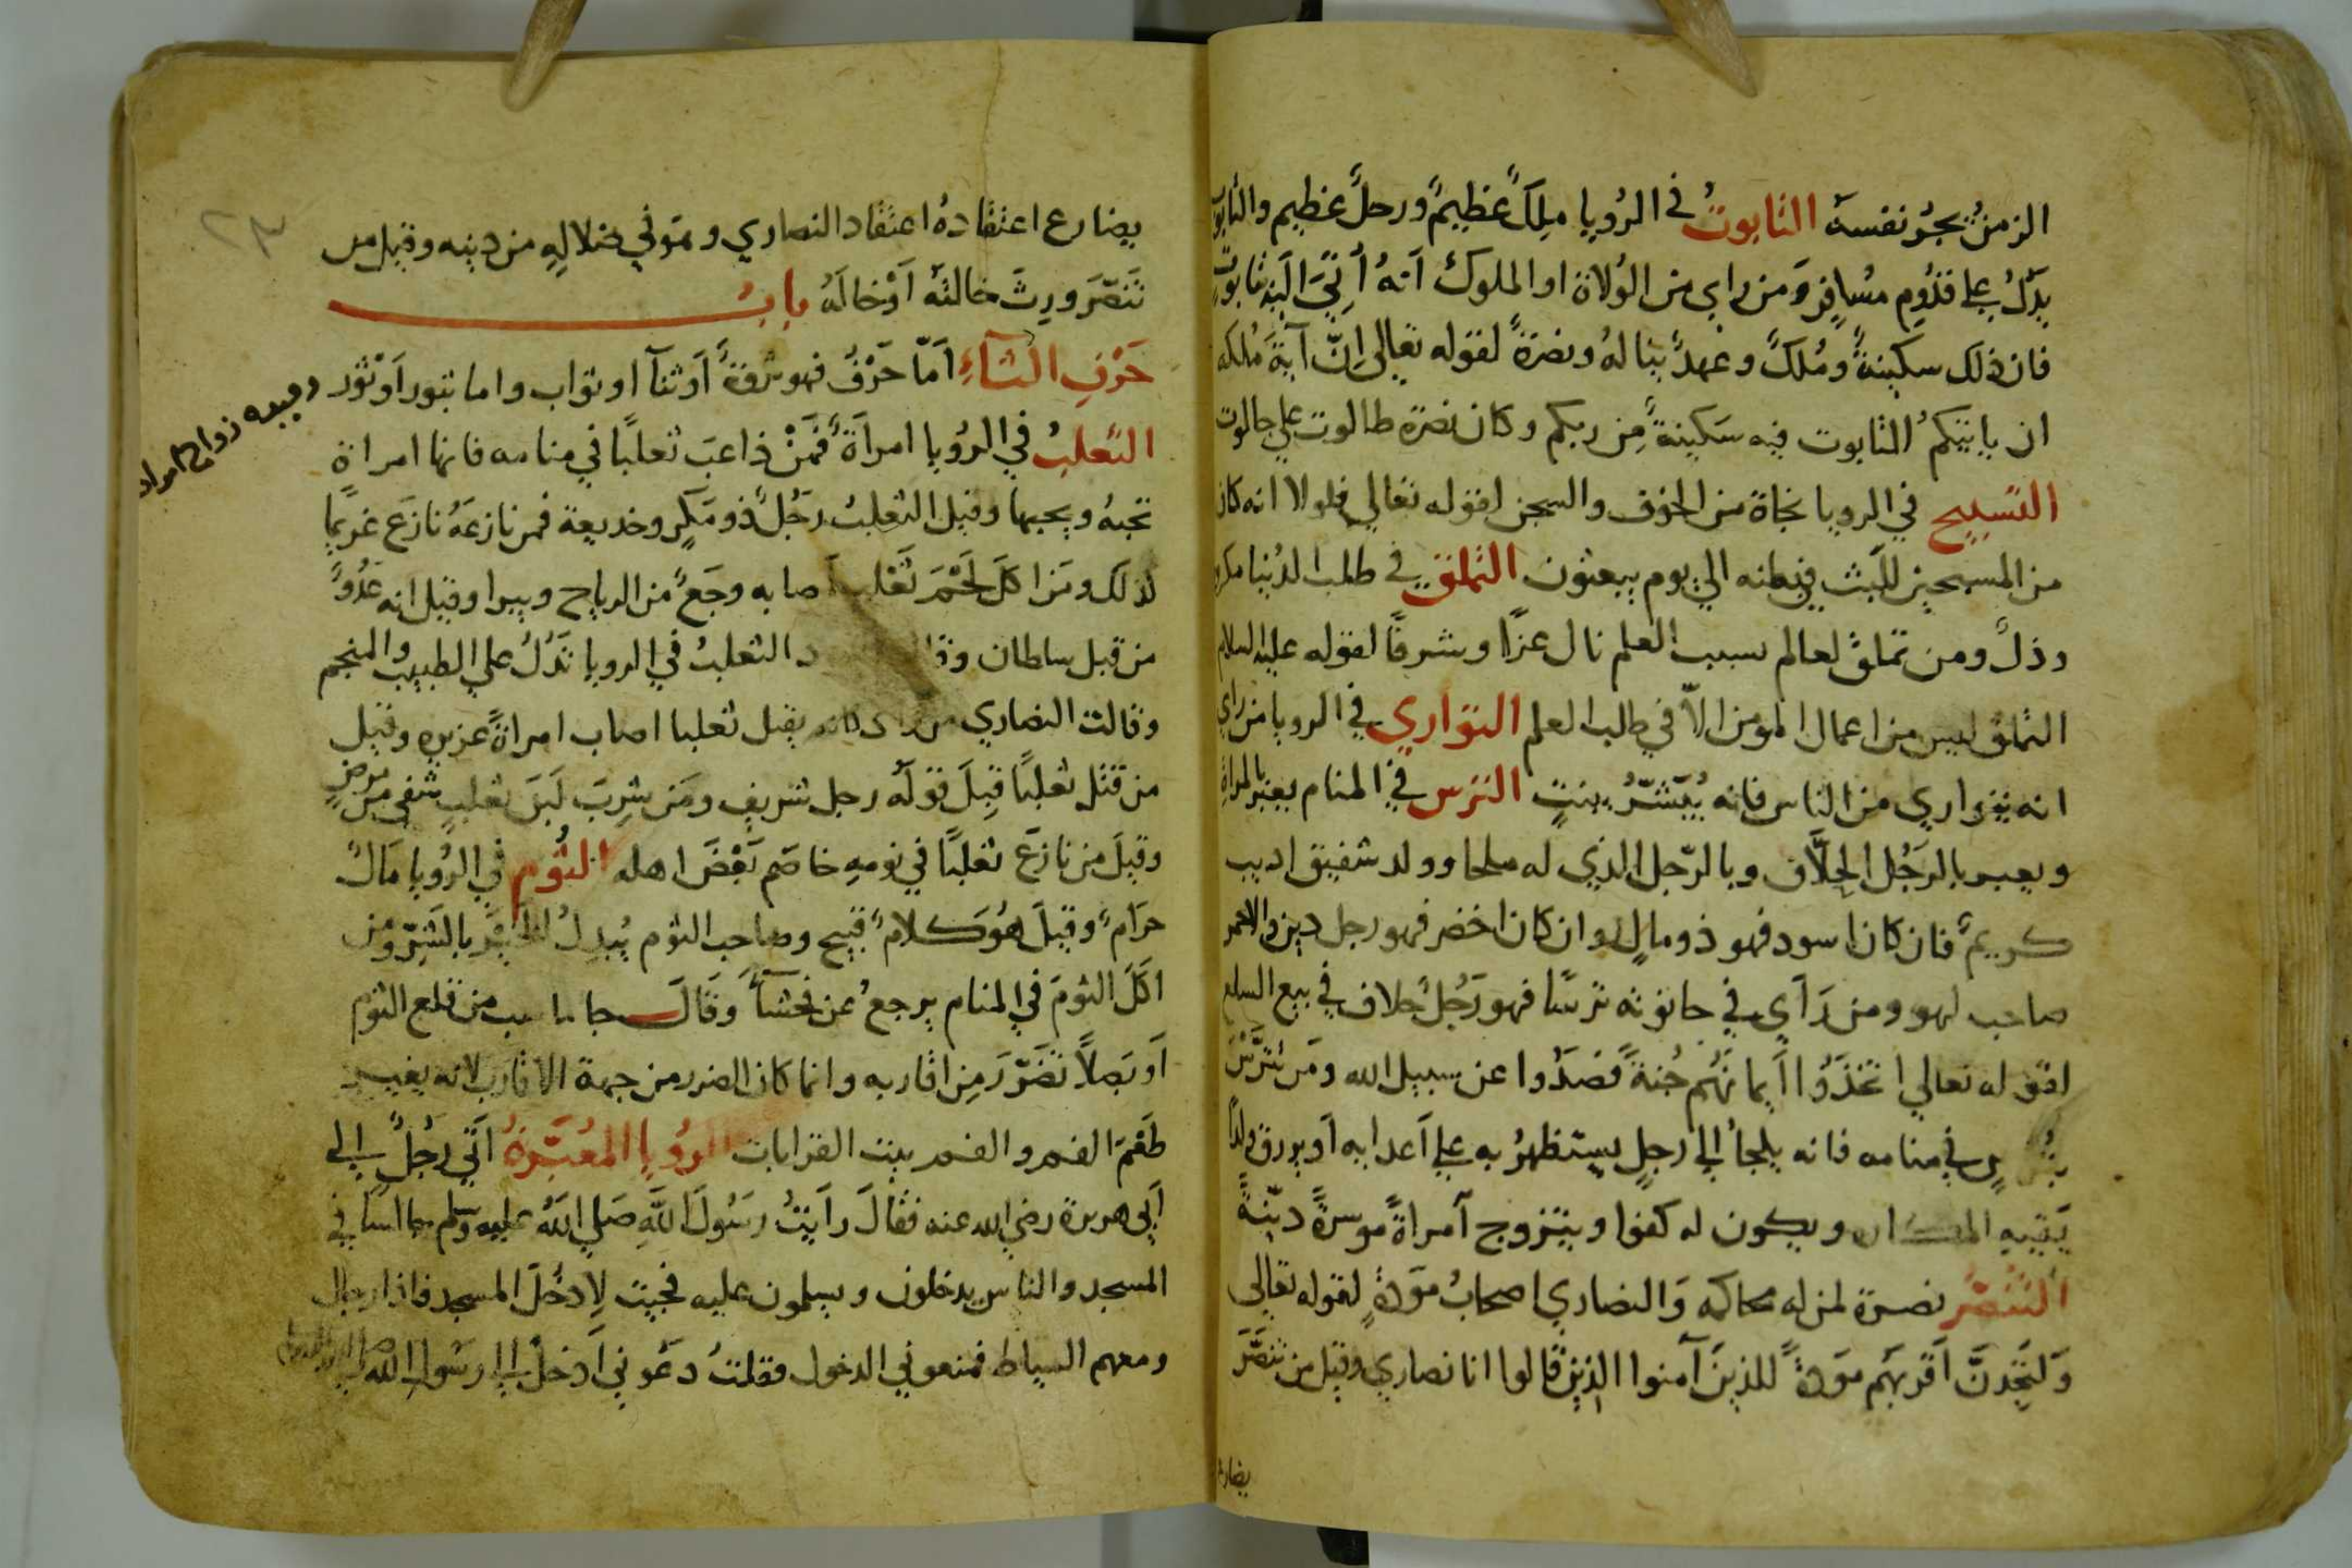 الزمنُ يجُرُ نفسهَ التابوتُ في الرُويا مِلكَ عَظيمٌ ورجلٌ عظيم والتابوت
يدَلُ على قدُوم مُسافر وَمن راى من الوُلاة او الملوك انهُ أتى اليه تابوت
فان ذلك سكينةً ومُلكً وعهدً يناله ونصرَةً لقوله تعالى انّ آيةَ مُلكه
ان ياتيكمُ التابوت فيه سَكينةٌ مِن ربكم وكان نصرة طالوت على جالوت
التسبيح في الرويا نجاة من الخوف والسجن لقوله تعالي فلولا انه كان
من المسبحين للبث في بطنه الي يوم يبعثون التملق في طلب الدُنيا مكروه
وذلٌ ومن تملقَ لعالم بسبب العلم نال عزًا وشرفًا لقوله عليه السلام
التملق ليس من اعمال المومن الاّ في طلب العلم التواري في الرويا من راي
انه يتواري من الناس فانه يُبَشّرُ ببنتٍ الترس في المنام يعبر بالمراة
ويعبر بالرَجُل الحِلَّاف وبالرّجل الذي له ملحا وولد شفيق اديب
كريمٌ فان كان اسود فهو ذو مالٍ وان كان اخضر فهو رجل دين والاحمر
صاحب لهو ومن رَآي في حانوته ترسًا فهو رَجُلٌ حلاف في بيع السلع
لقوله تعالي اتخذَوُا اَيمانهُم جُنةً فصَدُوا عن سبيل الله ومَن تترَّسَ
في منامه فانه يلجأ الى رجلٍ يستظهرُ به على اَعدايه اَو يرزق ولدًا
يَقيهِ المكاره ويكون له كفوا ويتزوج آمراةً موسرةً ديّنةً
التنَصُر نصرة لمن له محاكمه وَالنصاري اصحابُ موَدةٍ لقوله تعالى
وَلتجَدنَّ اَقربهَم موَدةً للذينَ آمنوا الذين قالوا انا نصاري وقيل من تنصَّرَ
يضارع
يضارع اعتقادهُ اعتقاد النصاري وتوفي ضلالهِ من دينه وقيل من
تَنَصّرَ ورِثَ خالتهُ اَوْ خالهُ بابُ
حَرْفِ الثاءِ اَمّا حَرْفُ فهو ثروَةٌ اَوْ ثنآ او ثواب واما ثبور اَوْ ثور
الثعلبُ في الرُويا امرآةٌ فمَنْ ذاعبَ ثعلبًا في منامه فانها امراة
تحبهُ ويحبها وقيل الثعلبُ رَجُلٌ ذو مَكِر وخديعة فمن نازعهُ نازعَ غريًما
لذلك ومَن اكلَ لَحْمَ ثعْلب اصابه وجَعٌ من الرياح ويبرا وقيل انه عدُوٌ
من قبل سلطان وقال الثعلبُ في الرويا تدَلُ على الطبيب والمنجم
وقالت النصاري من راى كانه يقبل ثعلبا اصاب امراةً عزيزه وقيل
من قتل ثعلبًا قبِلَ قولَهُ رجل شريف ومَن شرِبَ لَبنَ ثعلبٍ شفي من مرضٍ
وقيلَ من نازعَ ثعلبًا في نومهِ خاصَم بَعْضَ اهله الثُوم في الرُويا مَالٌ
حرَامٌ وقيلَ هُوَ كلامٌ قبيح وصاحب الثوم يُبدِلُ الخَيرَ بالشَرِ ومن
اكلَ الثومَ في المنام يرجعُ عن فحشآء وَقالَ جاماسب من قلع الثوم
اَو بَصلاً تضَرّرَ مِن اقاربه وانما كان الضرر من جهة الاقارب لانه يغير
طَعْمَ الفم والفم بيت القرابات الرُويا المعَُبّرةُ اَتي رَجُلٌ الى
اَبي هريرة رضي الله عنه فقالَ راَيتُ رَسُولَ اللَّهِ صَلي اللَهُ عليه وسلم جالسا في
المسجد والناس يدخلون ويسلمون عليه فجيت لِادخُلَ المسجد فاذا رجال
ومعهم السياط فمنعوني الدخول فقلتُ دعَوني اَدخلُ الى رسَول الله